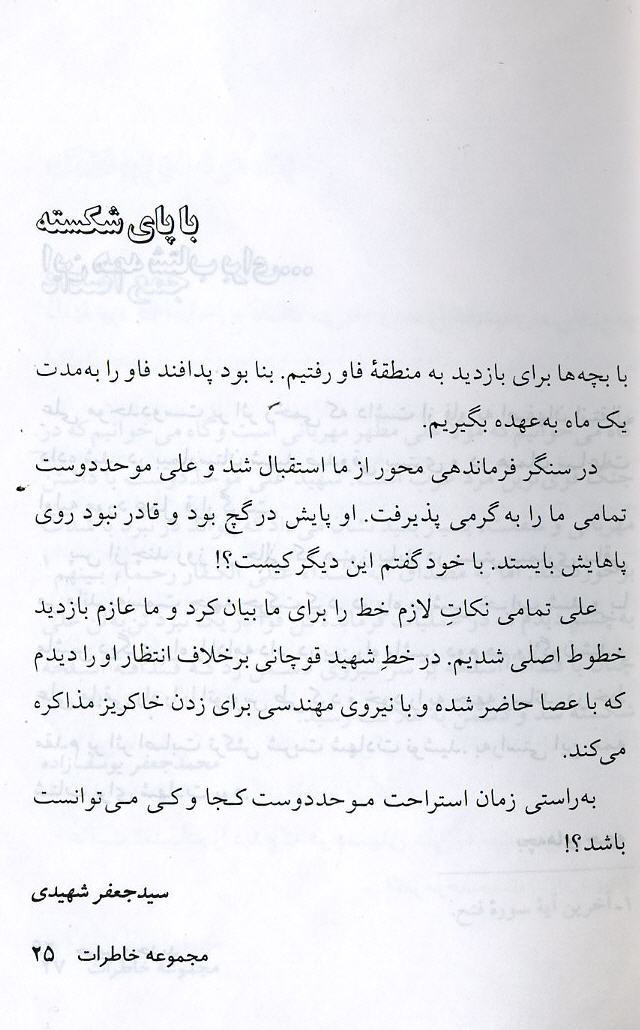 با پای شکسته
با بچه‌ها برای بازدید به منطقهٔ فاو رفتیم. بنا بود پدافند فاو را به‌مدت
یک ماه به‌عهده بگیریم.
در سنگر فرماندهی محور از ما استقبال شد و علی موحددوست
تمامی ما را به گرمی پذیرفت. او پایش در گچ بود و قادر نبود روی
پاهایش بایستد. با خود گفتم این دیگر کیست؟!
علی تمامی نکاتِ لازم خط را برای ما بیان کرد و ما عازم بازدید
خطوط اصلی شدیم. در خطِ شهید قوچانی برخلاف انتظار او را دیدم
که با عصا حاضر شده و با نیروی مهندسی برای زدن خاکریز مذاکره
می‌کند.
به‌راستی زمان استراحت موحددوست کجا و کی می‌توانست
باشد؟!
سیدجعفر شهیدی
مجموعه خاطرات ۲۵